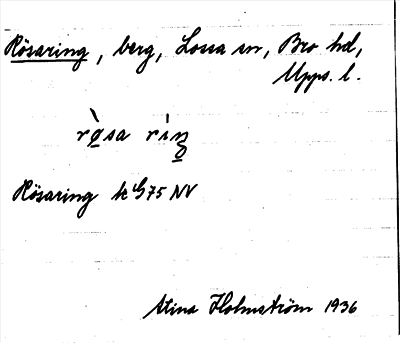 Rösaring, berg, Lossa sn, Bro hd,
Upps. l.
Rösaring k G75 NV
Stina Holmström 1936